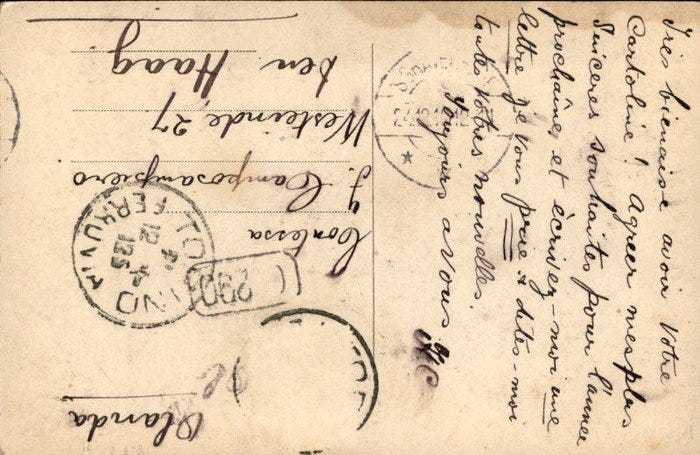 Très bienaise avoir votre
Cartoline! Agreer mes plus
Sinceres souhaites pour l'année
prochaîne, et écrivez-moi une
lettre je vous prie & dites-moi
toutes vôtres nouvelles.
Toujours a vous
Contessa
G. Camposampiero
Westeinde 27
den Haag
Olanda
TORINO
FERROVIA
12
290